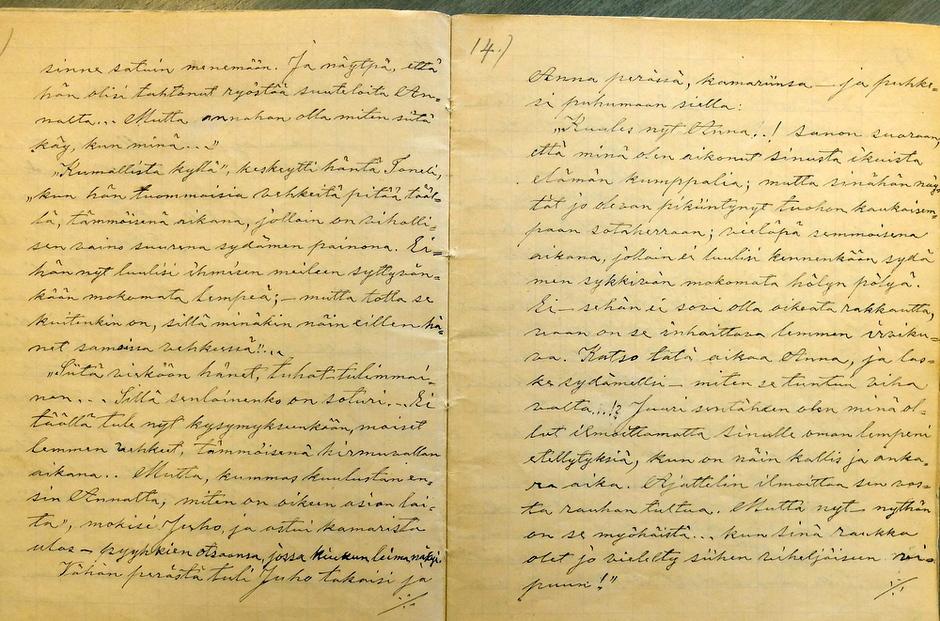 )
sinne satuin menemään. Ja näytpä, että
hän olisi tahtonut ryöstää suuteloita An-
nalta... Mutta annahan olla miten siitä
käy, kun minä..."
"Kumallista kyllä", keskeytti häntä Toneli,
"kun hän tuommoisia vehkeitä pitää tääl-
lä, tämmöisenä aikana, jolloin on viholli-
sen vaino suurina sydämen painona. Ei-
hän nyt luulisi ihmisen mieleen syttyvän-
kään mokomata lempeä; — mutta totta se
kuitenkin on, sillä minäkin näin eillen hä-
net samoissa vehkeissä!"...
"Siitä vieköön hänet, tuhat-tulimmai-
nen... Sillä senlainenko on soturi... Ei
täällä tule nyt kysymykseenkään, moiset
lemmen vehkeet, tämmöisenä hirmuvallan
aikana.. Mutta, kummas kuulustan en-
sin Annalta, miten on oikeen asian lai-
ta", mökisi Juho, ja astui kamarista
ulos — pyyhkien otsaansa, jossa kiukun leima näkyi.
Vähän perästä tuli Juho takaisi ja
·/·
14.)
Anna perässä, kamariinsa — ja puhke-
si puhumaan siellä:
"Kuules nyt Anna..! sanon suoraan,
että minä olen aikonut sinusta ikuista
elämän kumppalia; mutta sinähän näy-
tät jo olevan pikiintynyt tuohon kaukaisem-
paan sotaherraan; vieläpä semmoisena
aikana, jolloin ei luulisi kennenkään sydä
men sykkivän mokomata hölyn pölyä.
Ei — sehän ei sovi olla oikeata rakkautta,
vaan on se inhoittava lemmen irviku-
va. Katso tätä aikaa Anna, ja las-
ke sydämelläsi — miten se tuntuu viha
valta...!? Juuri sentähden olen minä ol-
lut ilmoittamatta sinulle oman lempeni
edellytyksiä, kun on näin kallis ja anka-
ra aika. Ajattelin ilmoittaa sen vas-
ta rauhan tultua. Mutta nyt — nythän
on se myöhäistä... kun sinä raukka
olet jo vietelty siihen viheljäisen rii-
puun!"
·/·